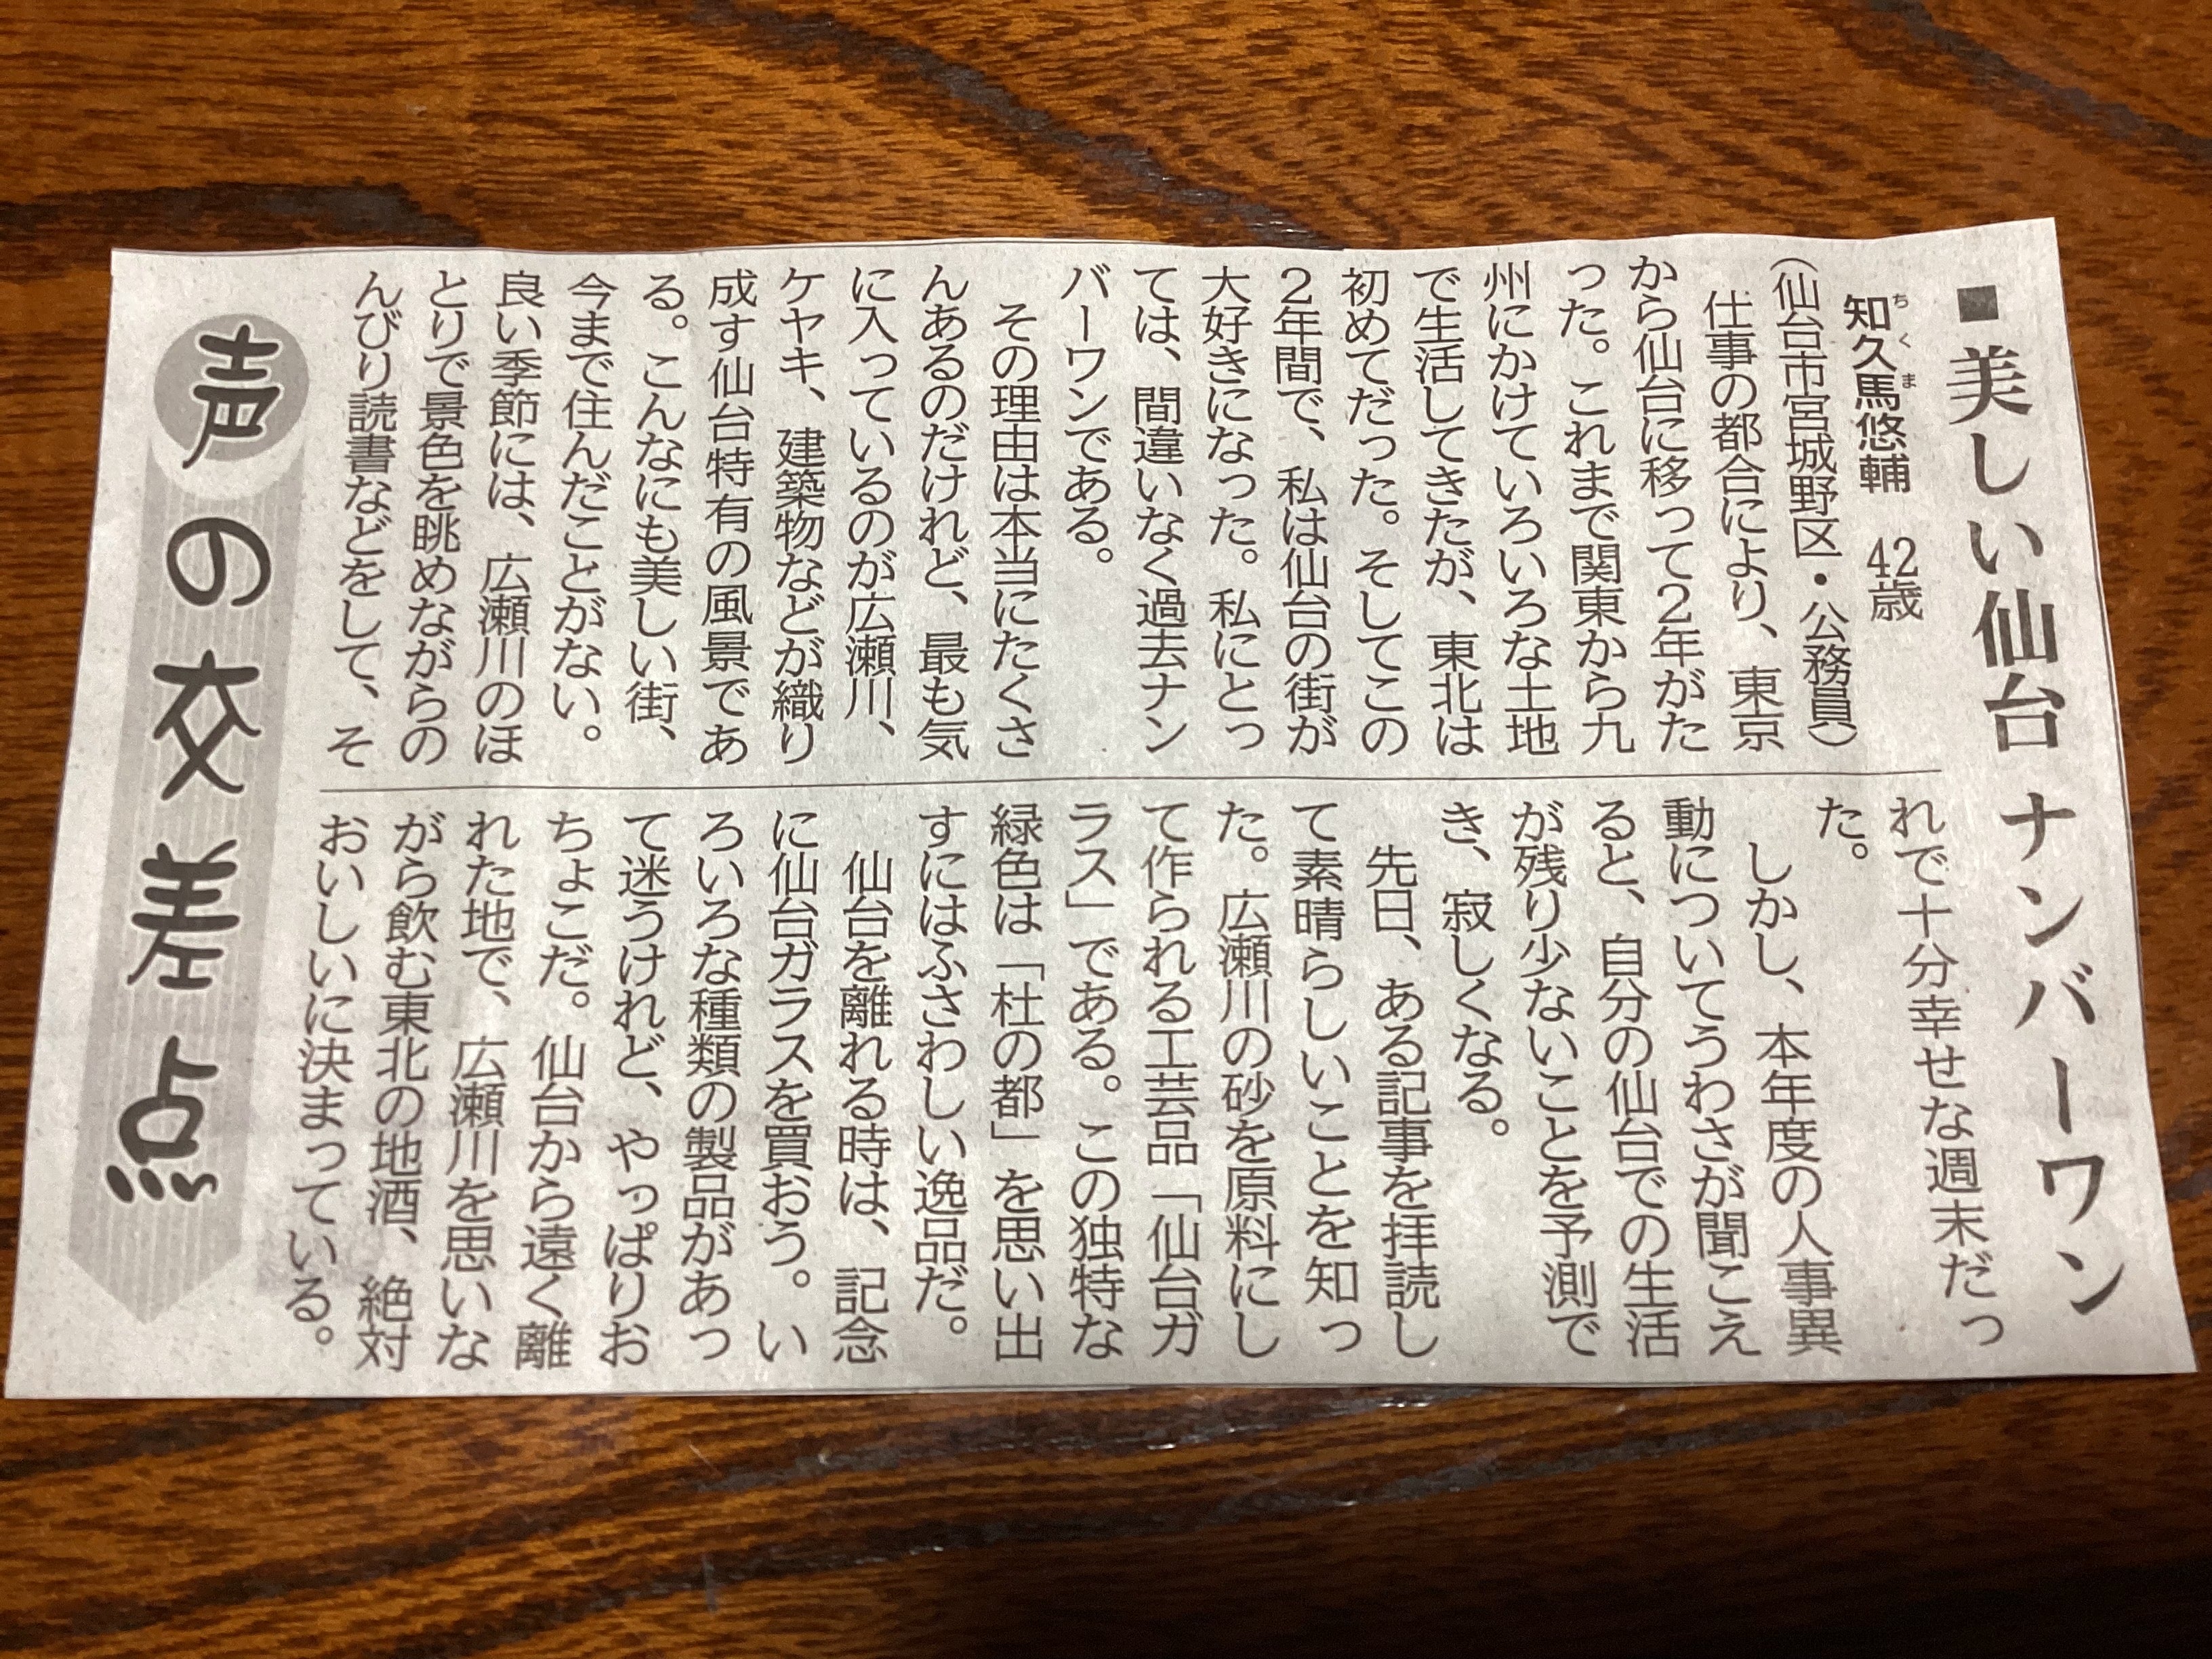 ■美しい仙台ナンバーワン
知久馬悠輔 42歳
ちくま
(仙台市宮城野区・公務員)
仕事の都合により、東京
から仙台に移って2年がた
った。これまで関東から九
州にかけていろいろな土地
で生活してきたが、東北は
初めてだった。そしてこの
2年間で、私は仙台の街が
大好きになった。私にとっ
ては、間違いなく過去ナン
バーワンである。
その理由は本当にたくさ
んあるのだけれど、最も気
に入っているのが広瀬川、
ケヤキ、建築物などが織り
成す仙台特有の風景であ
る。こんなにも美しい街、
今まで住んだことがない。
良い季節には、広瀬川のほ
とりで景色を眺めながらの
んびり読書などをして、そ
れで十分幸せな週末だっ
た。
しかし、本年度の人事異
動についてうわさが聞こえ
ると、自分の仙台での生活
が残り少ないことを予測で
き、寂しくなる。
先日、ある記事を拝読し
て素晴らしいことを知っ
た。広瀬川の砂を原料にし
て作られる工芸品「仙台ガ
ラス」である。この独特な
緑色は「杜の都」を思い出
すにはふさわしい逸品だ。
仙台を離れる時は、記念
に仙台ガラスを買おう。い
ろいろな種類の製品があっ
て迷うけれど、やっぱりお
ちょこだ。仙台から遠く離
れた地で、広瀬川を思いな
がら飲む東北の地酒、絶対
おいしいに決まっている。
声の交差点